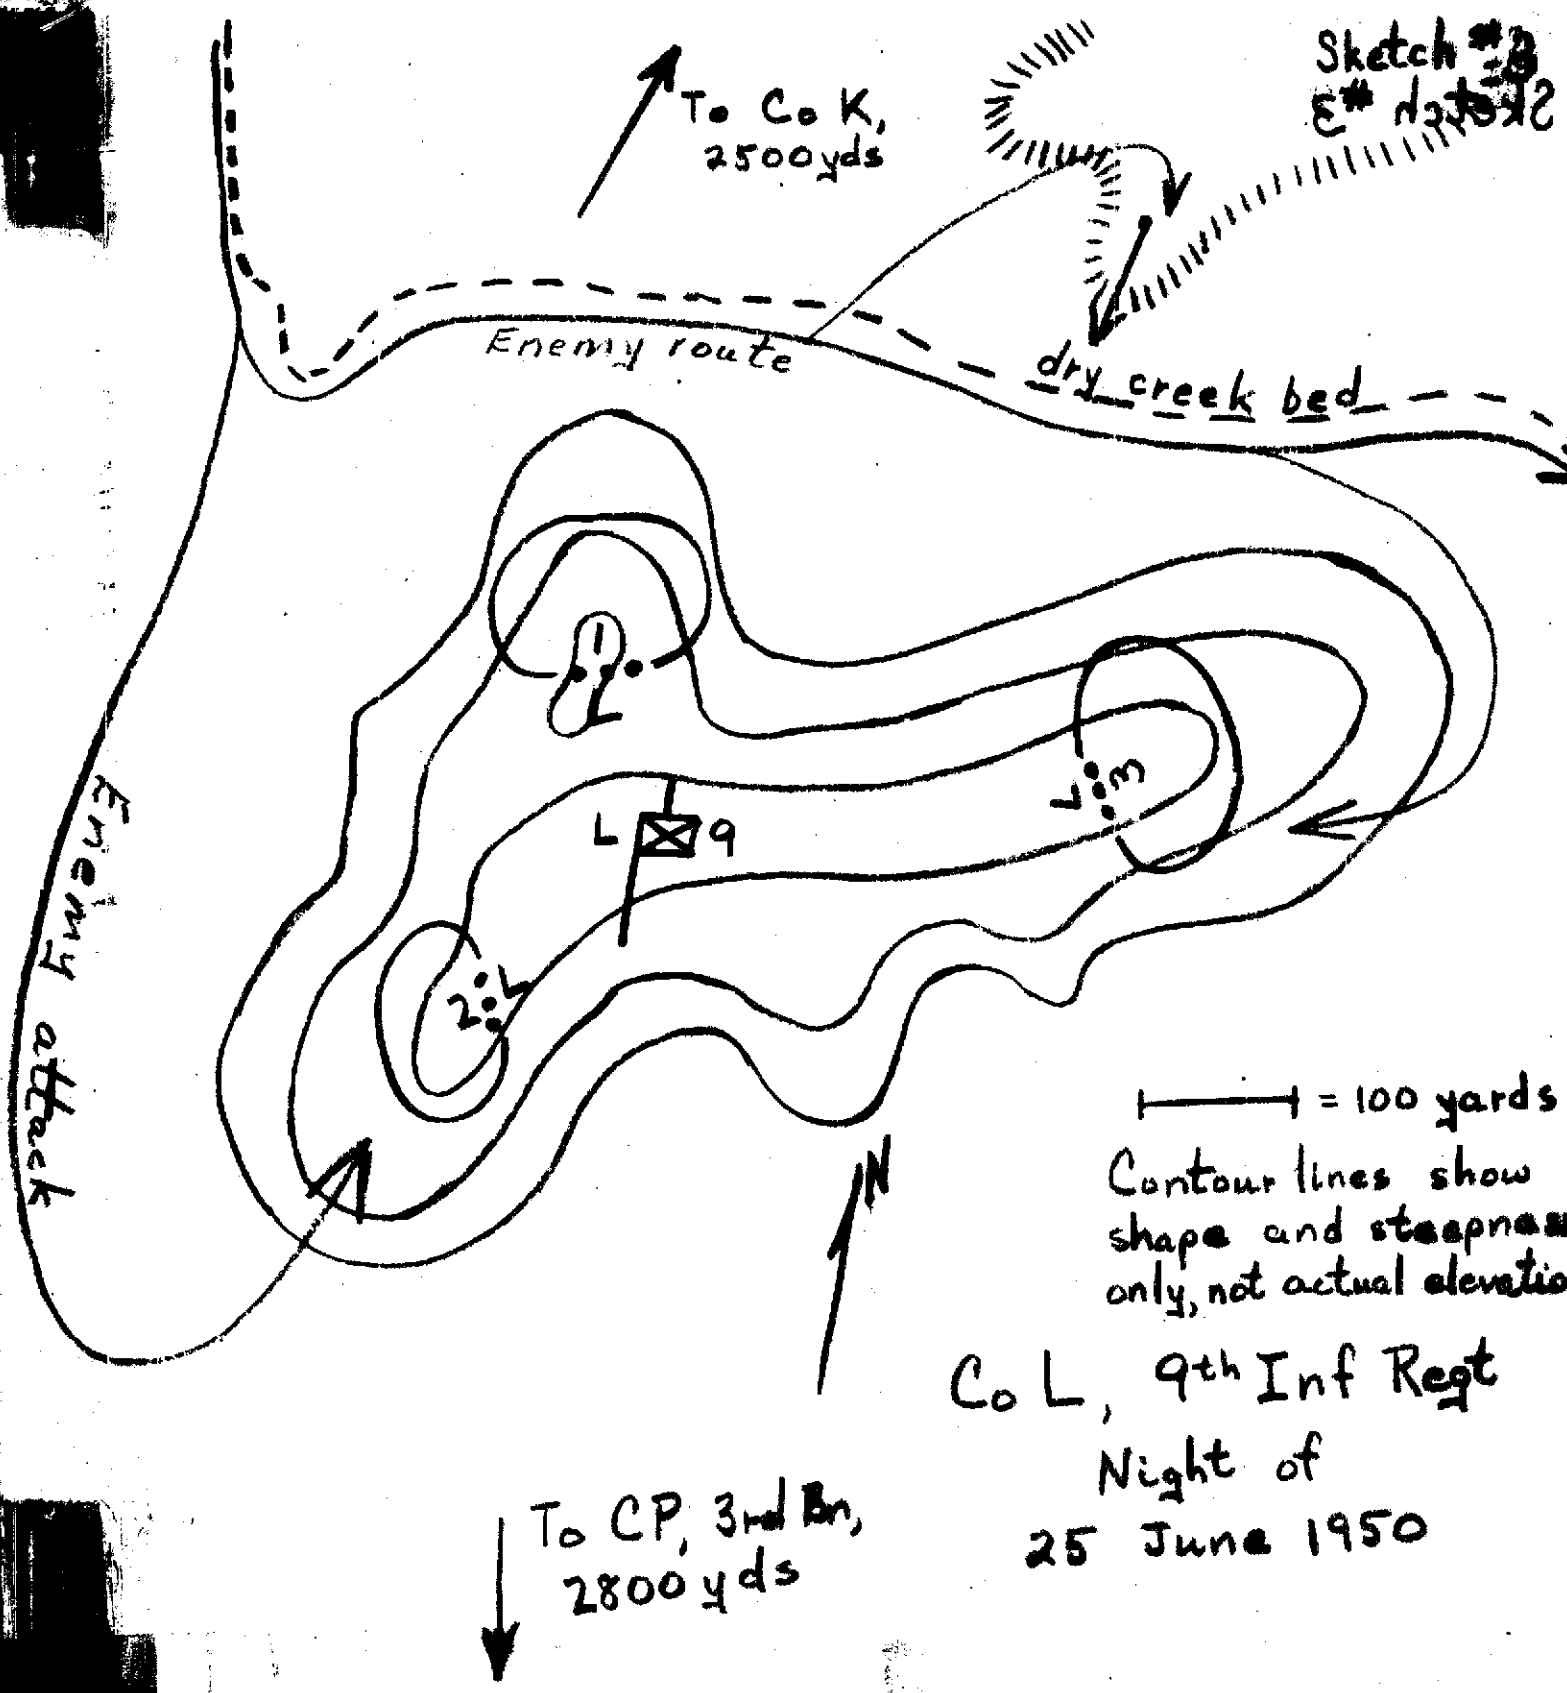 Sketch #3
Sketch #3
To Co K,
2500 yds
Enemy route
dry creek bed
1
L
L 3
L 9
2 L
Enemy attack
= 100 yards
Contour lines show
shape and steepness
only, not actual elevatio
N
Co L, 9th Inf Regt
Night of
25 June 1950
To CP, 3rd Bn,
2800 yds